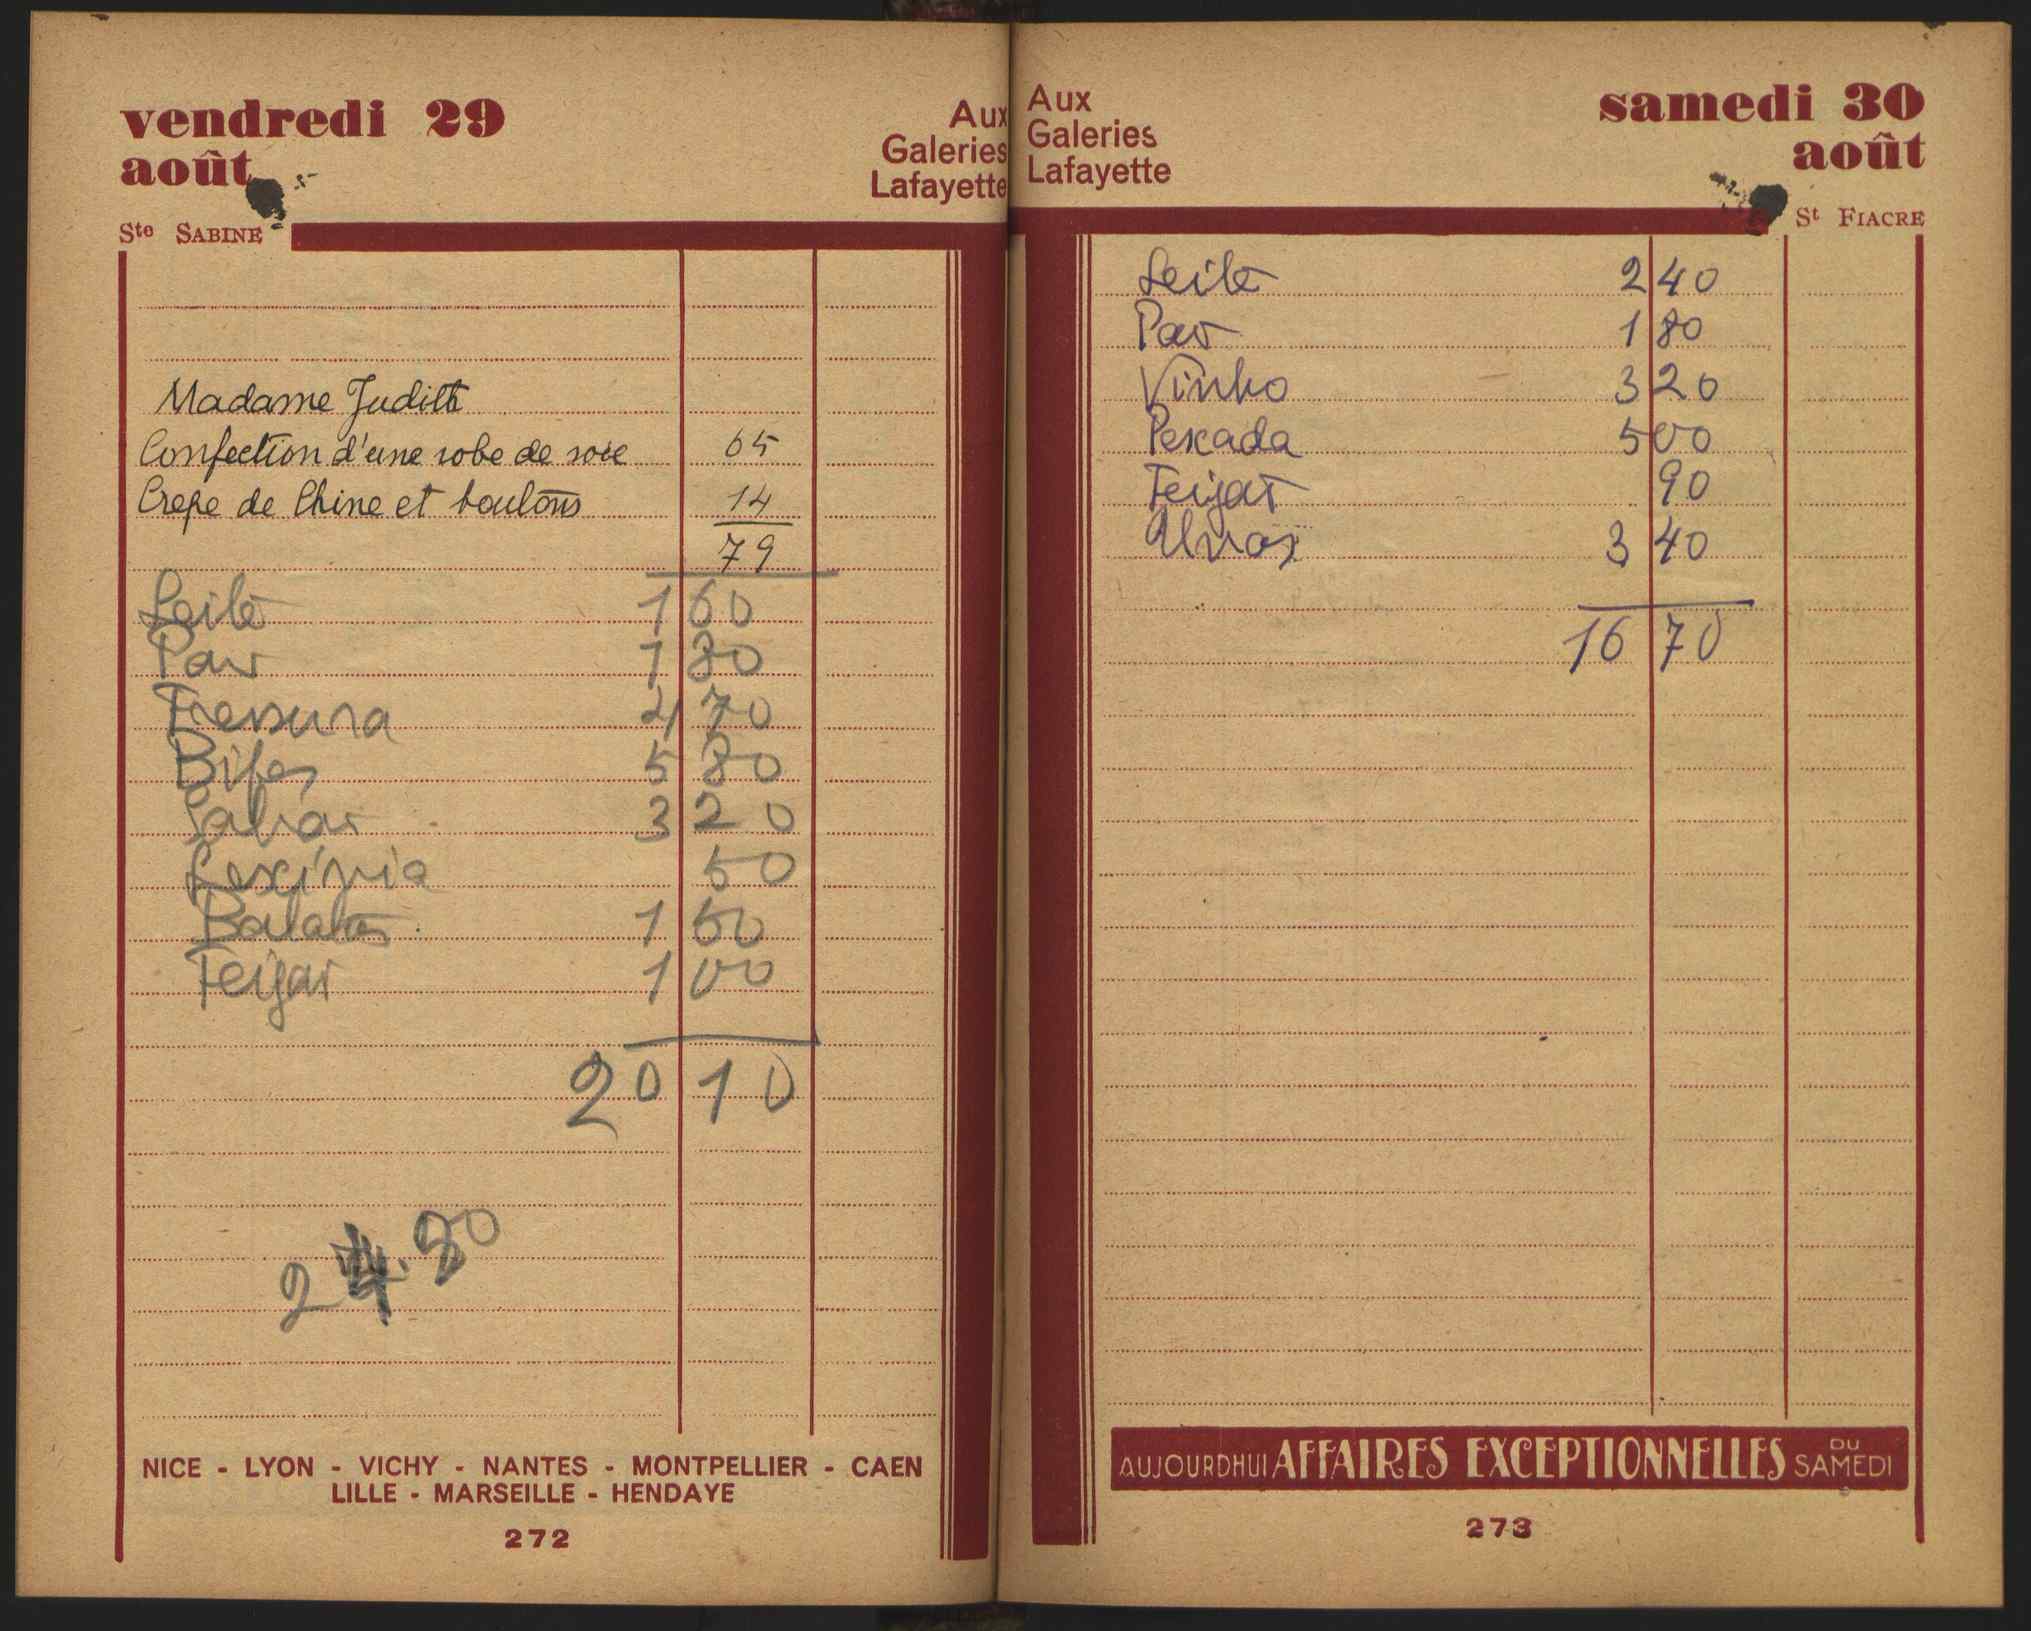 vendredi 29
août
Ste SABINE
Aux
Galeries
Lafayette
Madame Judith
Confection d'une robe de soie 65
Crepe de Chine et boutons 14
79
Leite 1 60
Pao 1 80
Fressura 4 70
Bifes 5 80
3 20
Lexivia 50
Batatas 1 50
Feijao 1 00
20 10
NICE - LYON - VICHY - NANTES - MONTPELLIER - CAEN
LILLE - MARSEILLE - HENDAYE
272
Aux
Galeries
Lafayette
samedi 30
août
St FIACRE
Leite 2 40
Pao 1 80
Vinho 3 20
Pescada 5 00
Feijao 90
Uvas 3 40
16 70
AUJOURDHUI AFFAIRES EXCEPTIONNELLES DU SAMEDI
273